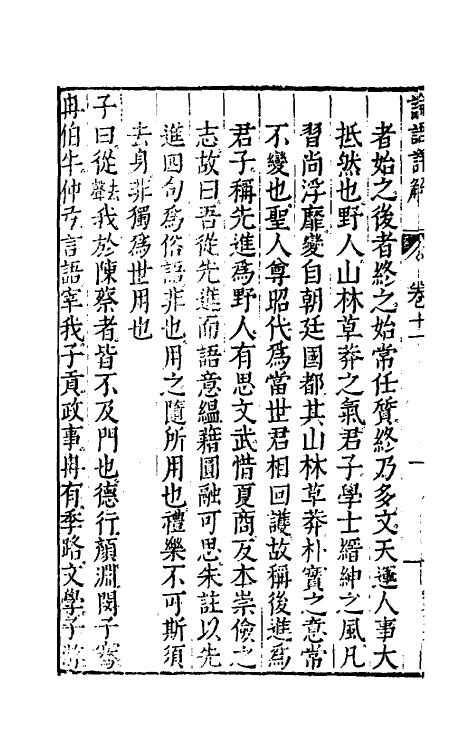 論語詳解 卷十一 一
者始之後者終之始常任質終乃多文天運人事大
抵然也野人山林草莽之氣君子學士縉紳之風凡
習尚浮靡變自朝廷國都其山林草莽朴實之意常
不變也聖人尊昭代爲當世君相回護故稱後進爲
君子稱先進爲野人有思文武惜夏商反本崇儉之
志故曰吾從先進而語意縕藉圓融可思朱註以先
進四句爲俗語非也用之隨所用也禮樂不可斯須
去身非獨爲世用也
子曰從去聲我於陳蔡者皆不及門也德行顏淵閔子騫
冉伯牛仲弓言語宰我子貢政事冉有季路文學子游